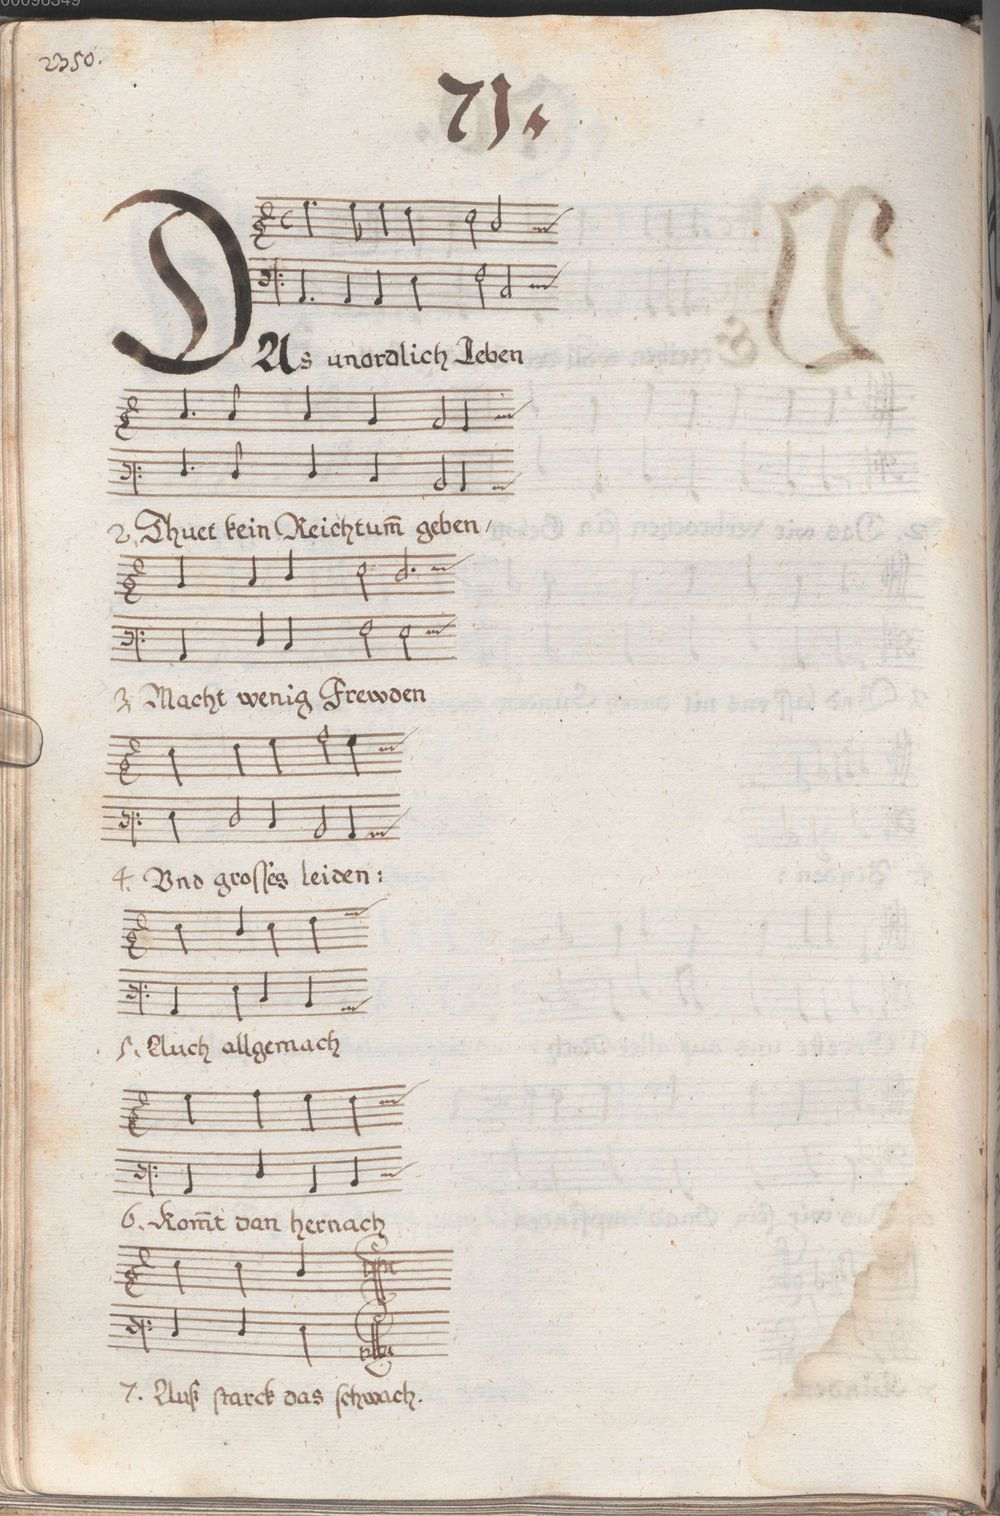 00098349
2350.
71.
DAs unordlich Leben
2. Thuet kein Reichtum̃ geben,
3 Macht wenig Frewden
4. Vnd grosses leiden:
5. Auch allgemach
6. Kom̃t dan hernach
7. Auß starck das schwach.